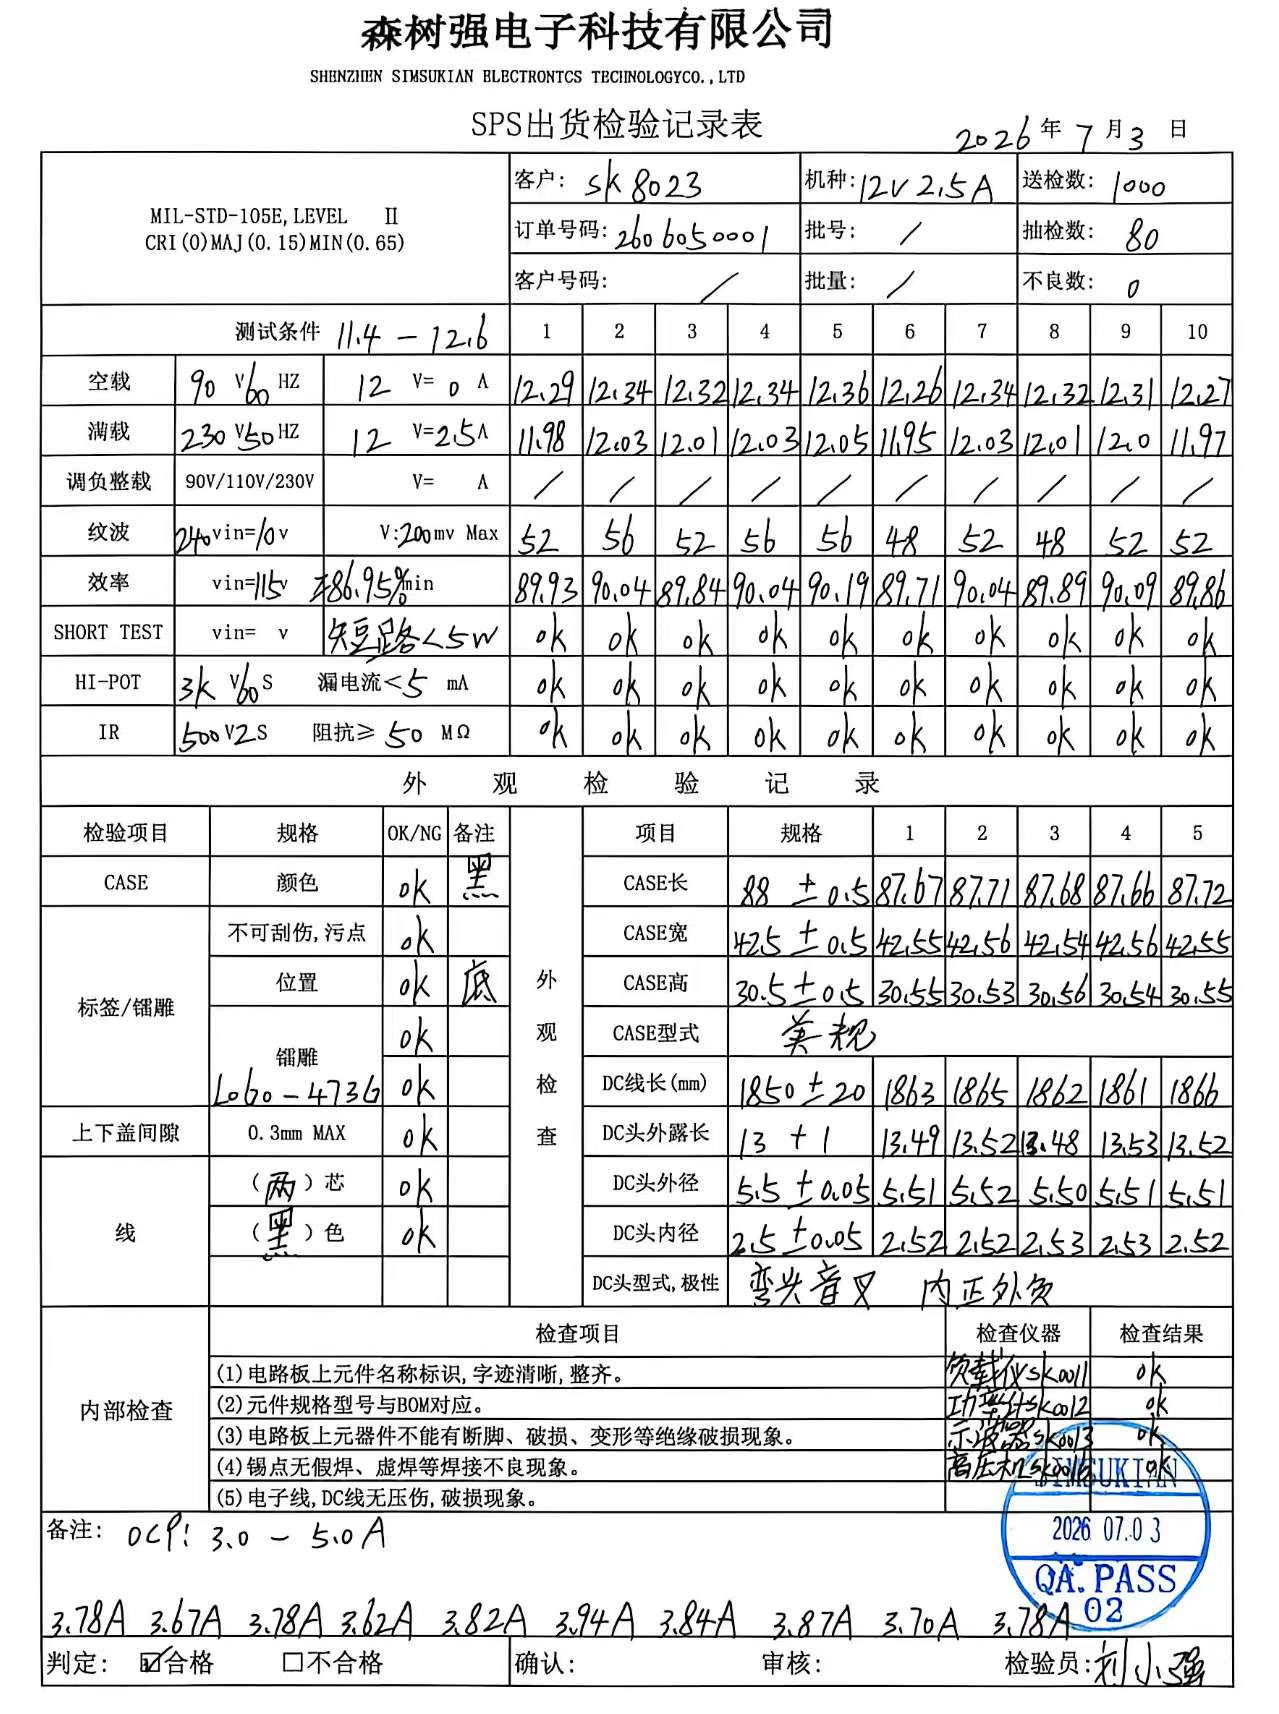 森树强电子科技有限公司
SHENZHEN SIMSUKIAN ELECTRONTCS TECHNOLOGYCO.,LTD
SPS出货检验记录表 2026年7月3日
MIL-STD-105E,LEVEL Ⅱ
CRI(0)MAJ(0.15)MIN(0.65)
客户: SK8023 机种:12V2.5A 送检数: 1000
订单号码: 2606050001 批号: / 抽检数: 80
客户号码: / 批量: / 不良数: 0
测试条件 11.4-12.6 1 2 3 4 5 6 7 8 9 10
空载 90V60HZ 12 V= 0 A 12.29 12.34 12.32 12.34 12.36 12.26 12.34 12.32 12.31 12.27
满载 230V50HZ 12 V=2.5A 11.98 12.03 12.01 12.03 12.05 11.95 12.03 12.01 12.0 11.97
调负整载 90V/110V/230V V= A / / / / / / / / / /
纹波 240vin=10v V:200mv Max 52 56 52 56 56 48 52 48 52 52
效率 vin=115v 86.95%min 89.93 90.04 89.84 90.04 90.19 89.71 90.04 89.89 90.09 89.86
SHORT TEST vin= v 短路<5W ok ok ok ok ok ok ok ok ok ok
HI-POT 3KV60S 漏电流<5 mA ok ok ok ok ok ok ok ok ok ok
IR 500V2S 阻抗≥50 MΩ ok ok ok ok ok ok ok ok ok ok
外观检验记录
检验项目 规格 OK/NG 备注 外观检查 项目 规格 1 2 3 4 5
CASE 颜色 ok 黑 CASE长 88 ±0.5 87.67 87.71 87.68 87.66 87.72
标签/镭雕 不可刮伤,污点 ok CASE宽 42.5 ±0.5 42.55 42.56 42.54 42.56 42.55
位置 ok 底 CASE高 30.5±0.5 30.55 30.53 30.56 30.54 30.55
镭雕 ok CASE型式 美规
LOGO-4736 ok DC线长(mm) 1850±20 1863 1865 1862 1861 1866
上下盖间隙 0.3mm MAX ok DC头外露长 13 +1 13.49 13.52 13.48 13.53 13.52
线 (两)芯 ok DC头外径 5.5±0.05 5.51 5.52 5.50 5.51 5.51
(黑)色 ok DC头内径 2.5±0.05 2.52 2.52 2.53 2.53 2.52
DC头型式,极性 弯头音叉 内正外负
内部检查 检查项目 检查仪器 检查结果
(1)电路板上元件名称标识,字迹清晰,整齐。 负载仪SK0011 ok
(2)元件规格型号与BOM对应。 功率计SK0012 ok
(3)电路板上元器件不能有断脚、破损、变形等绝缘破损现象。 示波器SK0013 ok
(4)锡点无假焊、虚焊等焊接不良现象。 高压机 ok
(5)电子线,DC线无压伤,破损现象。
SIMSUKIAN
2026 07.03
QA.PASS
02
备注: OCP: 3.0-5.0A
3.78A 3.67A 3.78A 3.62A 3.82A 3.94A 3.84A 3.87A 3.70A 3.78A
判定: ☑合格 □不合格 确认: 审核: 检验员:刘小强